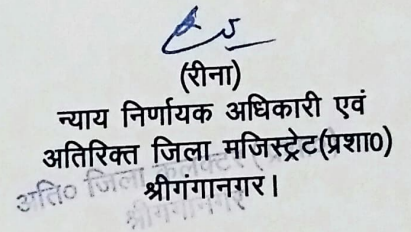 (रीना)
न्याय निर्णायक अधिकारी एवं
अतिरिक्त जिला मजिस्ट्रेट(प्रशा0)
श्रीगंगानगर।
अति० जिला कलेक्टर
श्रीगंगानगर